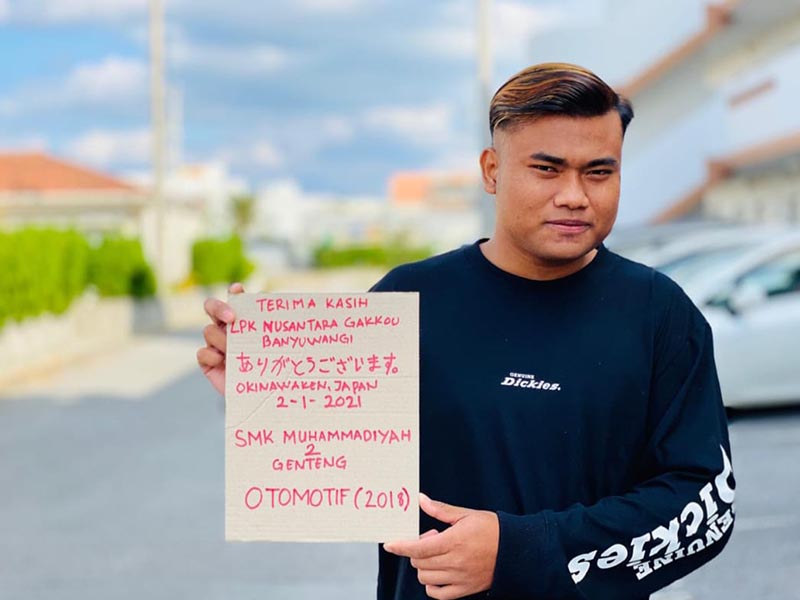 TERIMA KASIH
LPK NUSANTARA GAKKOU
BANYUWANGI
ありがとうございます。
OKINAWAKEN, JAPAN
2-1-2021
SMK MUHAMMADIYAH
2
GENTENG
OTOMOTIF (2018)
GENUINE
Dickies.
GENUINE
Dickies